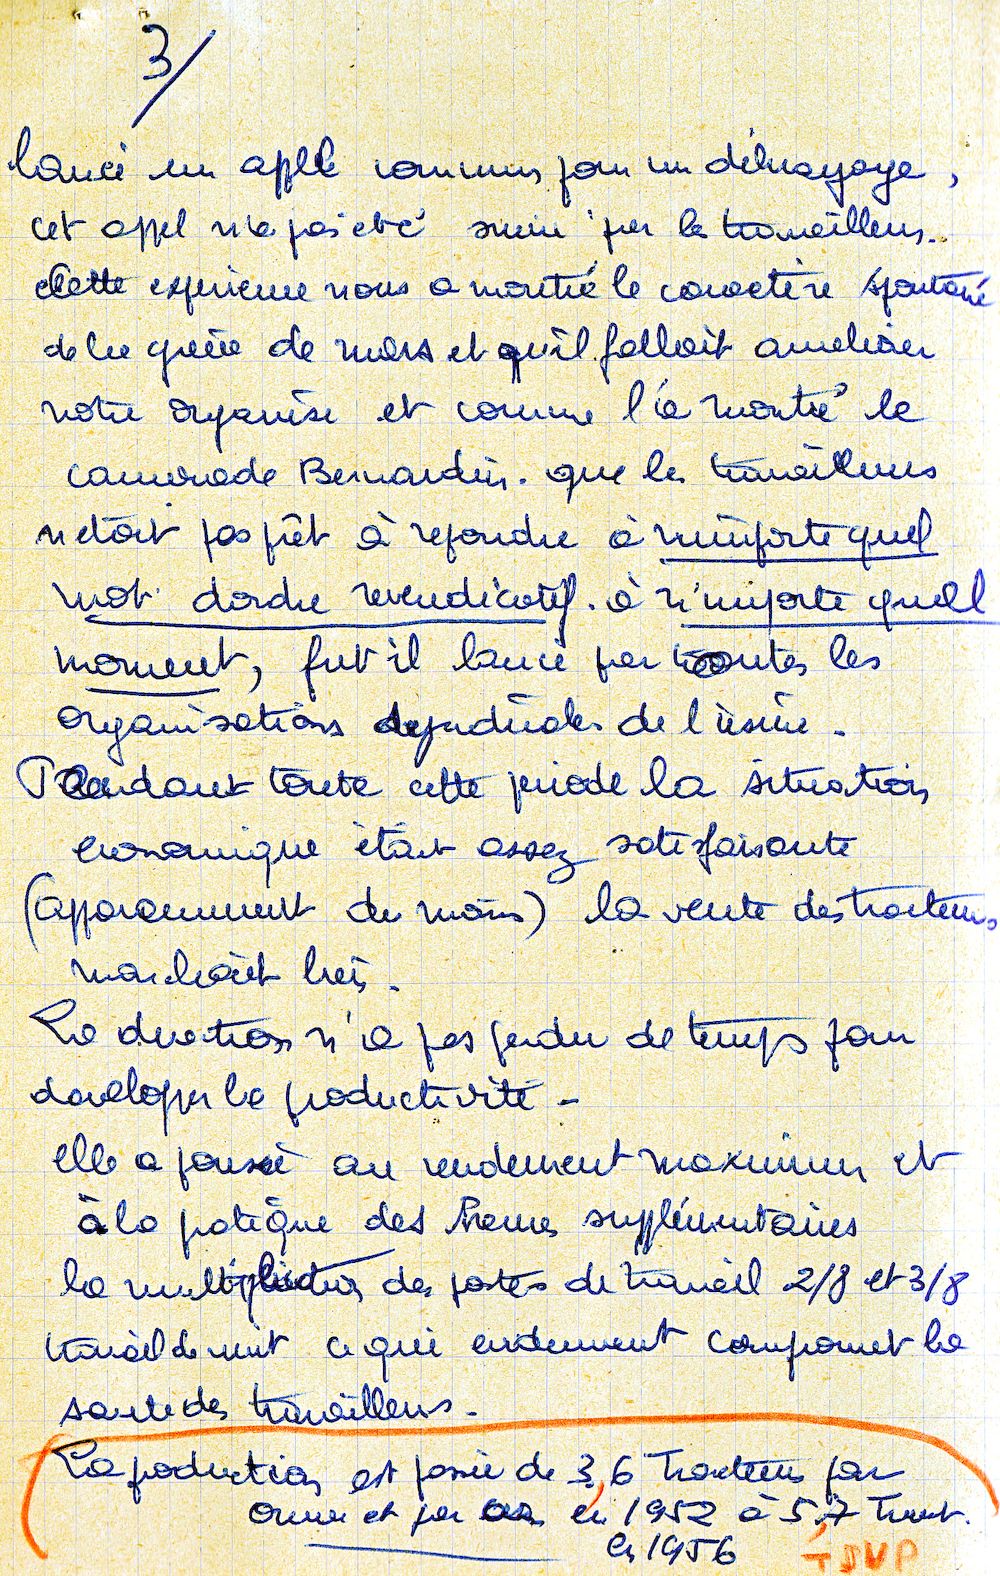 3/
lancé un appel commun pour un débrayage,
cet appel n'a pas été suivi par les travailleurs.
Cette experience nous a montré le caractère spontané
de la grève de mars et qu'il fallait ameliorer
notre organisa et comme l'a montré le
camarade Bernardin. que les travailleurs
n'etait pas prêt à repondre à n'importe quel
mot d'ordre revendicatif. à n'importe quell
moment, fut il lancé par toutes les
organisations syndicales de l'usine.
Pendant toute cette periode la situation
economique était assez satisfaisante
(apparemment du moins) la vente des tracteurs
marchait bien.
La direction n'a pas perdu de temps pour
developper la productivité -
elle a poussé au rendement maximum et
à la pratique des heures supplémentaires
la multiplication des postes de travail 2/8 et 3/8
travail de nuit ce qui evidemment compromet la
sante des travailleurs.
La production est passée de 3,6 Tracteurs par
Ouvrier et par an en 1952 à 5,7 Tract.
en 1956
TSVP